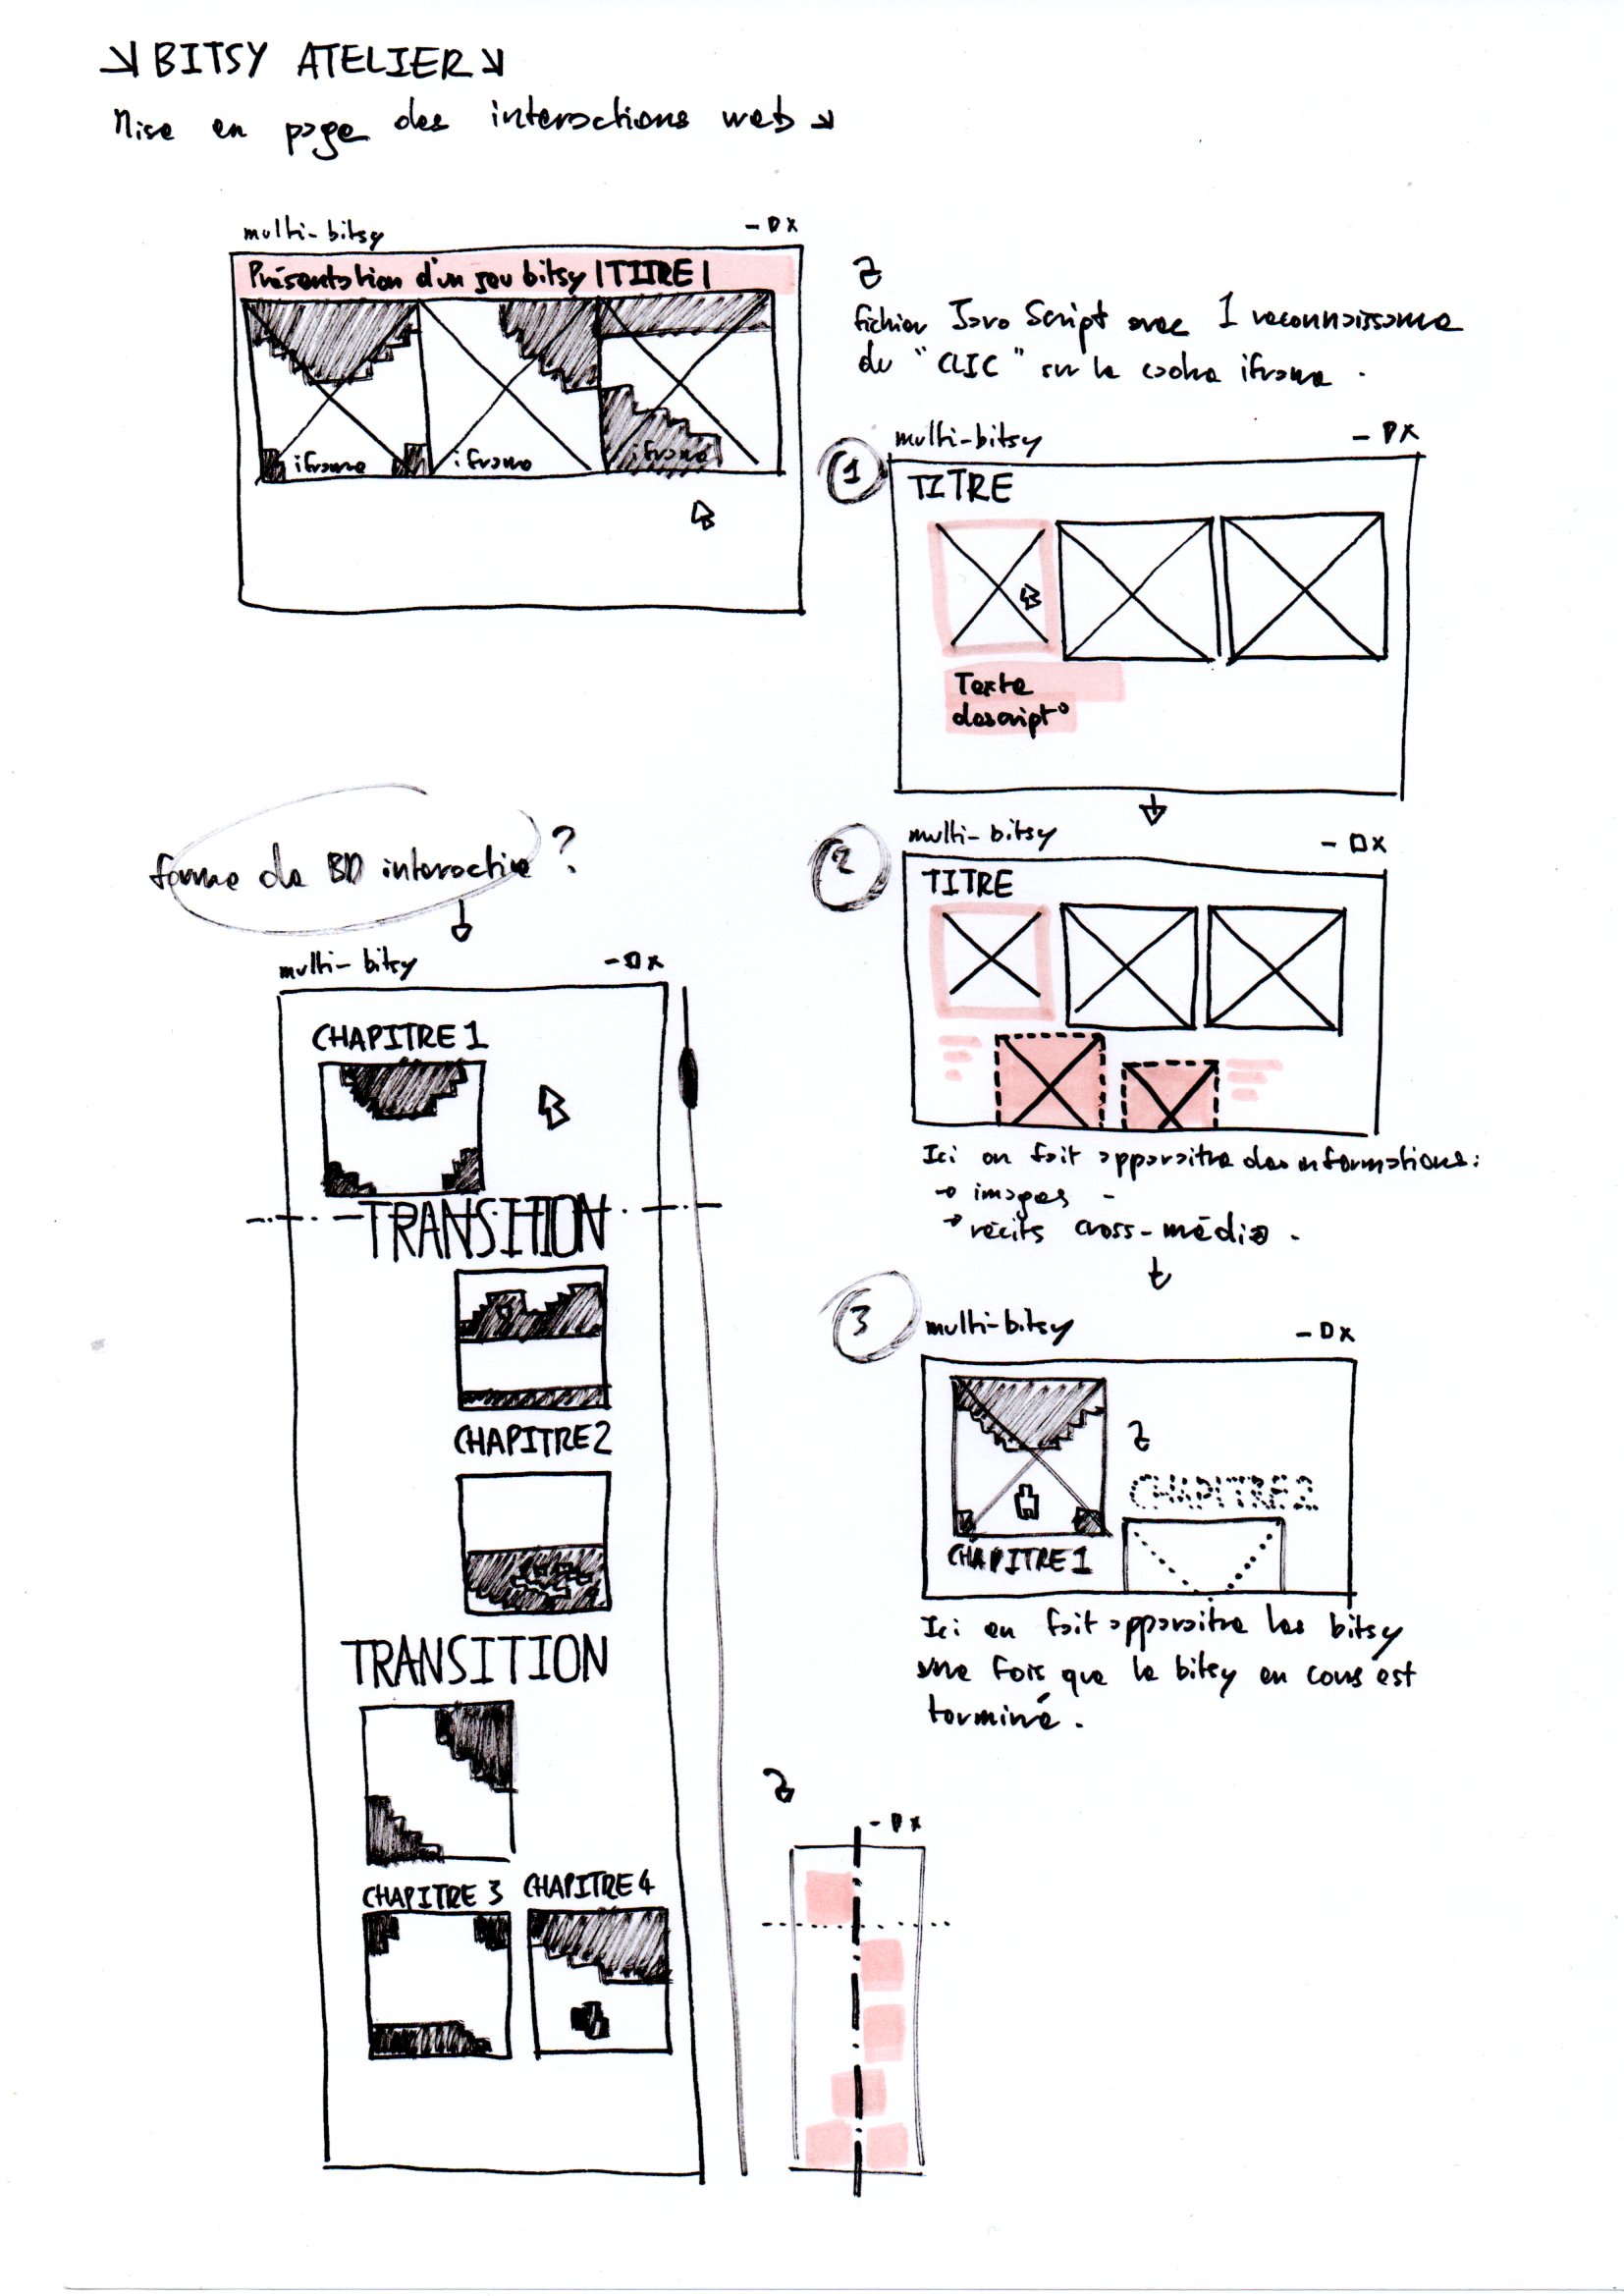 BITSY ATELIER
Mise en page des interactions web
multi-bitsy
Présentation d'un jeu bitsy |TITRE|
iframe
iframe
iframe
fichier Java Script avec 1 reconnaissance
du "CLIC" sur le cadre iframe.
1
multi-bitsy
TITRE
Texte
descript°
2
multi-bitsy
TITRE
Ici on fait apparaitre des informations:
→ images -
→ récits cross-média.
3
multi-bitsy
CHAPITRE 2
CHAPITRE 1
Ici on fait apparaitre les bitsy
une fois que le bitsy en cours est
terminé.
forme de BD interactive ?
multi-bitsy
CHAPITRE 1
TRANSITION
CHAPITRE 2
TRANSITION
CHAPITRE 3
CHAPITRE 4